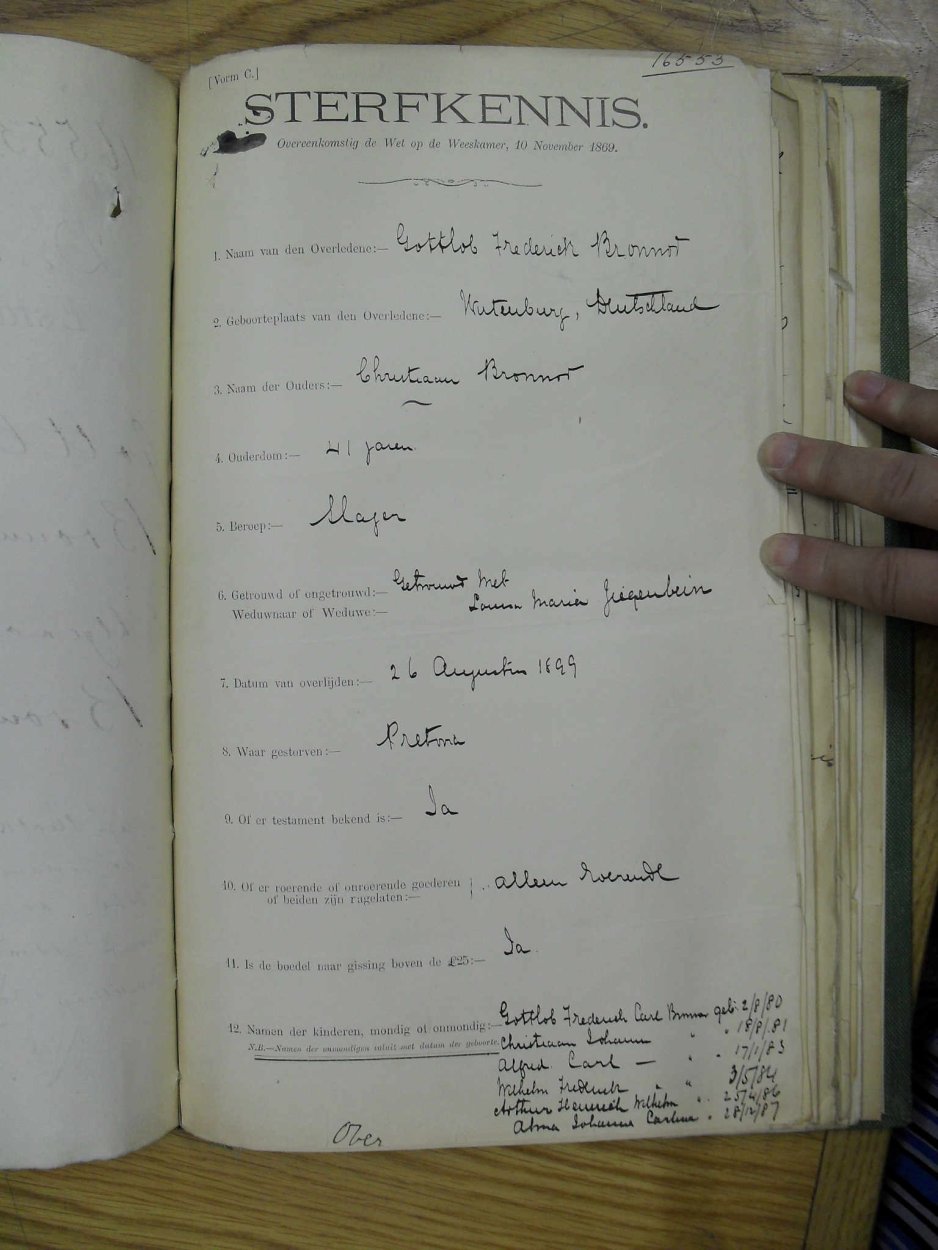 16553
[Vorm C.]
STERFKENNIS.
Overeenkomstig de Wet op de Weeskamer, 10 November 1869.
1. Naam van den Overledene:— Gottlob Frederick Bronnor
2. Geboorteplaats van den Overledene:— Wutenburg, Deutschland
3. Naam der Ouders:— Christiaan Bronnor
4. Ouderdom:— 41 jaren
5. Beroep:— Slager
6. Getrouwd of ongetrouwd:— Getrouwd Met
Weduwnaar of Weduwe:— Louisa Maria Ziegenbein
7. Datum van overlijden:— 26 Augustus 1899
8. Waar gestorven:— Pretoria
9. Of er testament bekend is:— Ja
10. Of er roerende of onroerende goederen
of beiden zijn nagelaten:— alleen roerende
11. Is de boedel naar gissing boven de £25:— Ja
12. Namen der kinderen, mondig of onmondig:— Gottlob Frederich Carl Bronnor geb: 2/8/80
N.B.—Namen der onmondigen voluit met datum der geboorte. Christiaan Johann " " 18/8/81
Alfred Carl — " " 17/1/83
Wilhelm Frederick " " 3/5/84
Arthur Heinrich Wilhelm " 25/4/86
Alma Johanna Carlina " 28/12/87
Over